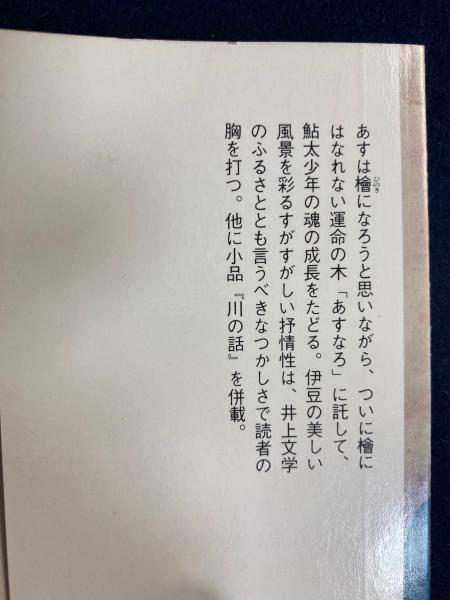 あすは檜になろうと思いながら、ついに檜に
ひのき
はなれない運命の木「あすなろ」に託して、
鮎太少年の魂の成長をたどる。伊豆の美しい
風景を彩るすがすがしい抒情性は、井上文学
のふるさととも言うべきなつかしさで読者の
胸を打つ。他に小品『川の話』を併載。